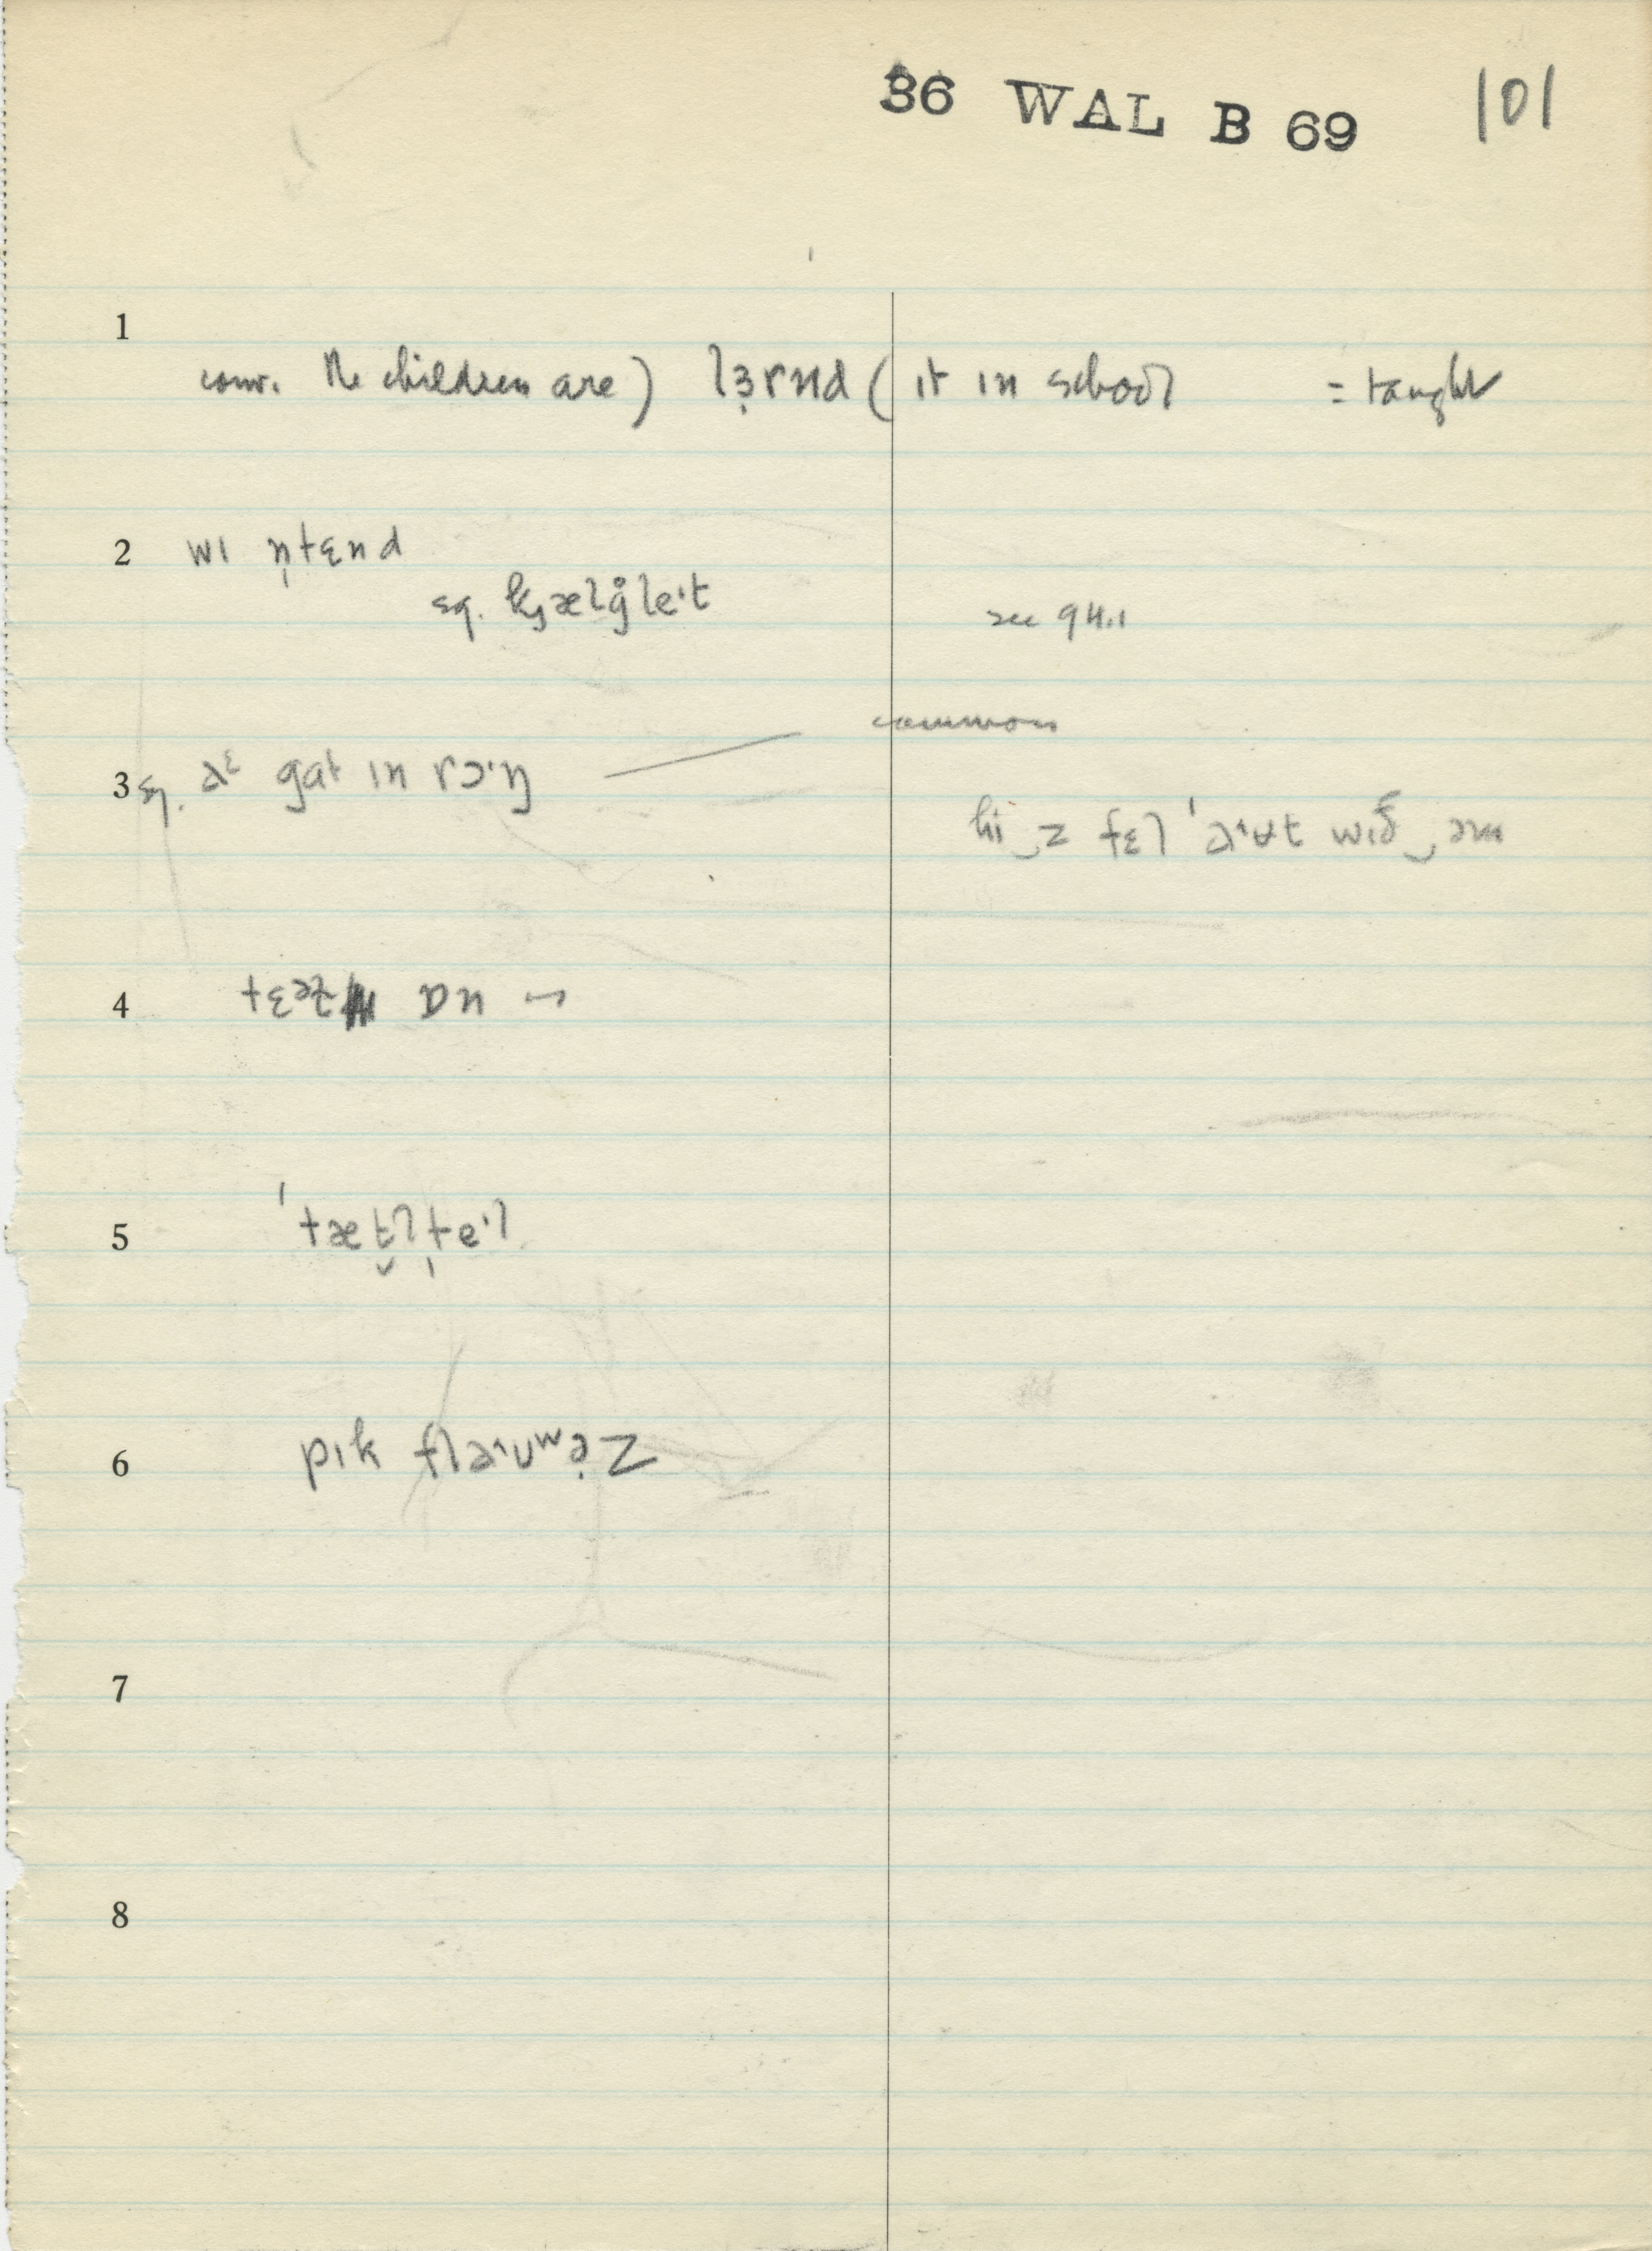 36 WAL B 69 101
1
conv. the children are) lɜ̣rnd ( it in school = taught
2 wɪ n̩tɛnd
sq. kjælg̊leˑt see 94.1
common
3 sq. gat ɪn rɔˑŋ
hi‿z fɛl ˈəˑʉt wɪð‿əm
4 tɛətʃ ɒn
5 ˈtæt̬l̩teˑl
6 pɪk fləˑʊʷə̣z
7
8